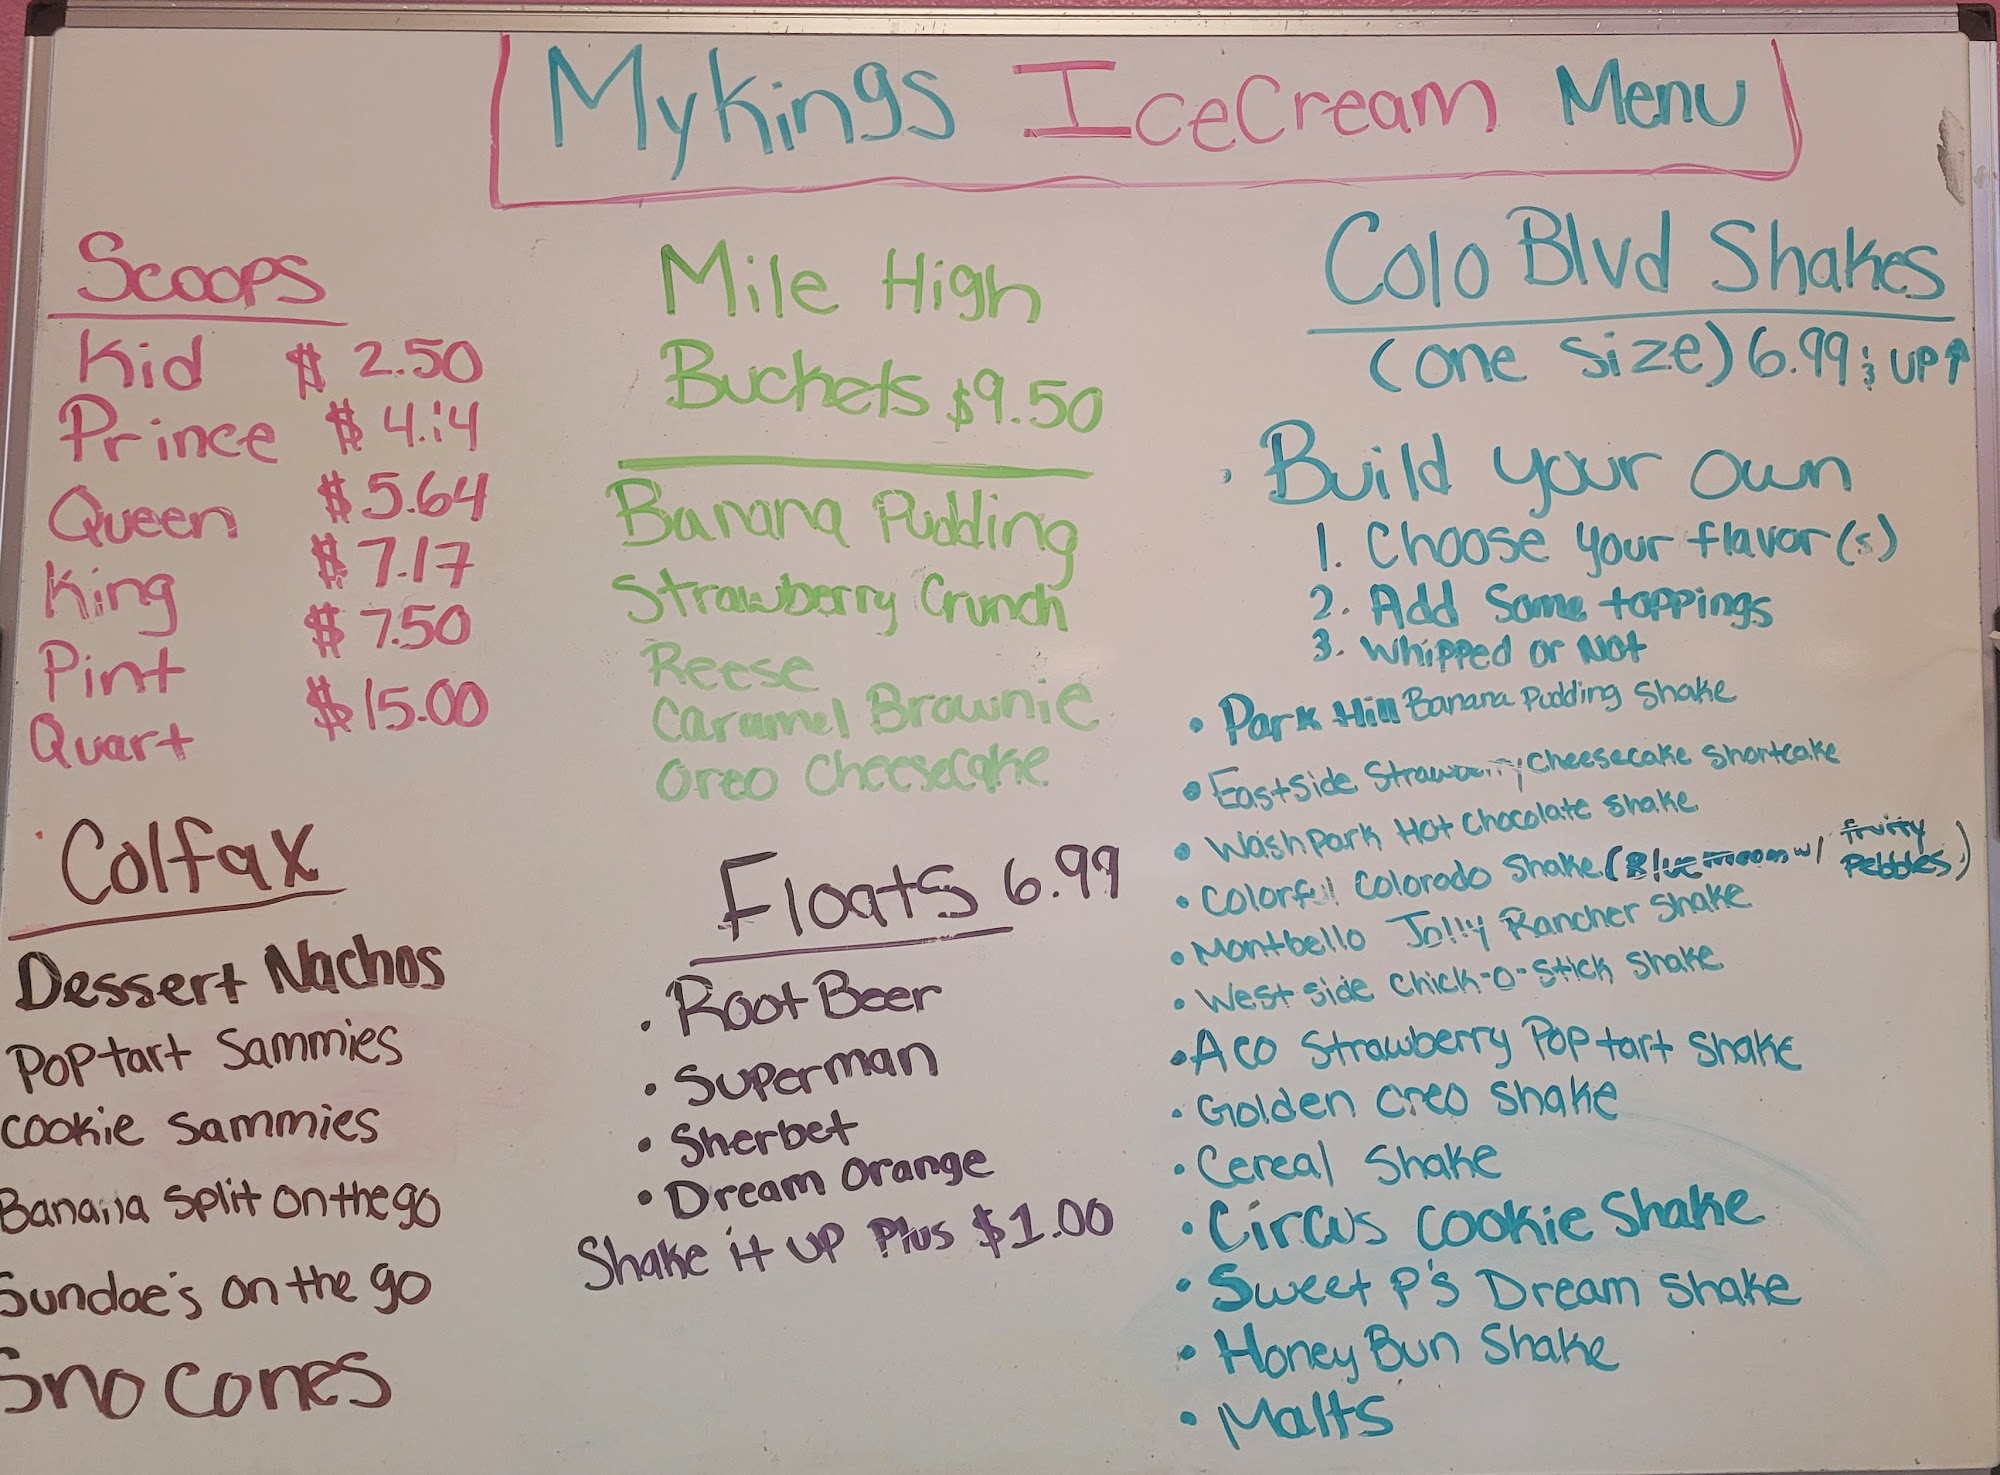 Mykings IceCream Menu
Scoops
Kid $ 2.50
Prince $ 4.14
Queen $5.64
King $7.17
Pint $ 7.50
Quart $15.00
Colfax
Dessert Nachos
Pop tart Sammies
Cookie Sammies
Banana Split on the go
Sundae's on the go
Sno Cones
Mile High
Buckets $9.50
Banana Pudding
Strawberry Crunch
Reese
Caramel Brownie
Oreo Cheesecake
Floats 6.99
• Root Beer
• Superman
• Sherbet
• Dream Orange
Shake it up Plus $1.00
Colo Blvd Shakes
(one size) 6.99 & UP↑
• Build your own
1. Choose your flavor(s)
2. Add Some toppings
3. Whipped or Not
• Park Hill Banana Pudding Shake
• Eastside Strawberry Cheesecake Shortcake
• Wash Park Hot Chocolate Shake
• Colorful Colorado Shake (Blue moon w/ fruity Pebbles)
• Montbello Jolly Rancher Shake
• West side Chick-o-stick Shake
• ACO Strawberry Pop tart Shake
• Golden Oreo Shake
• Cereal Shake
• Circus Cookie Shake
• Sweet P's Dream Shake
• Honey Bun Shake
• Malts